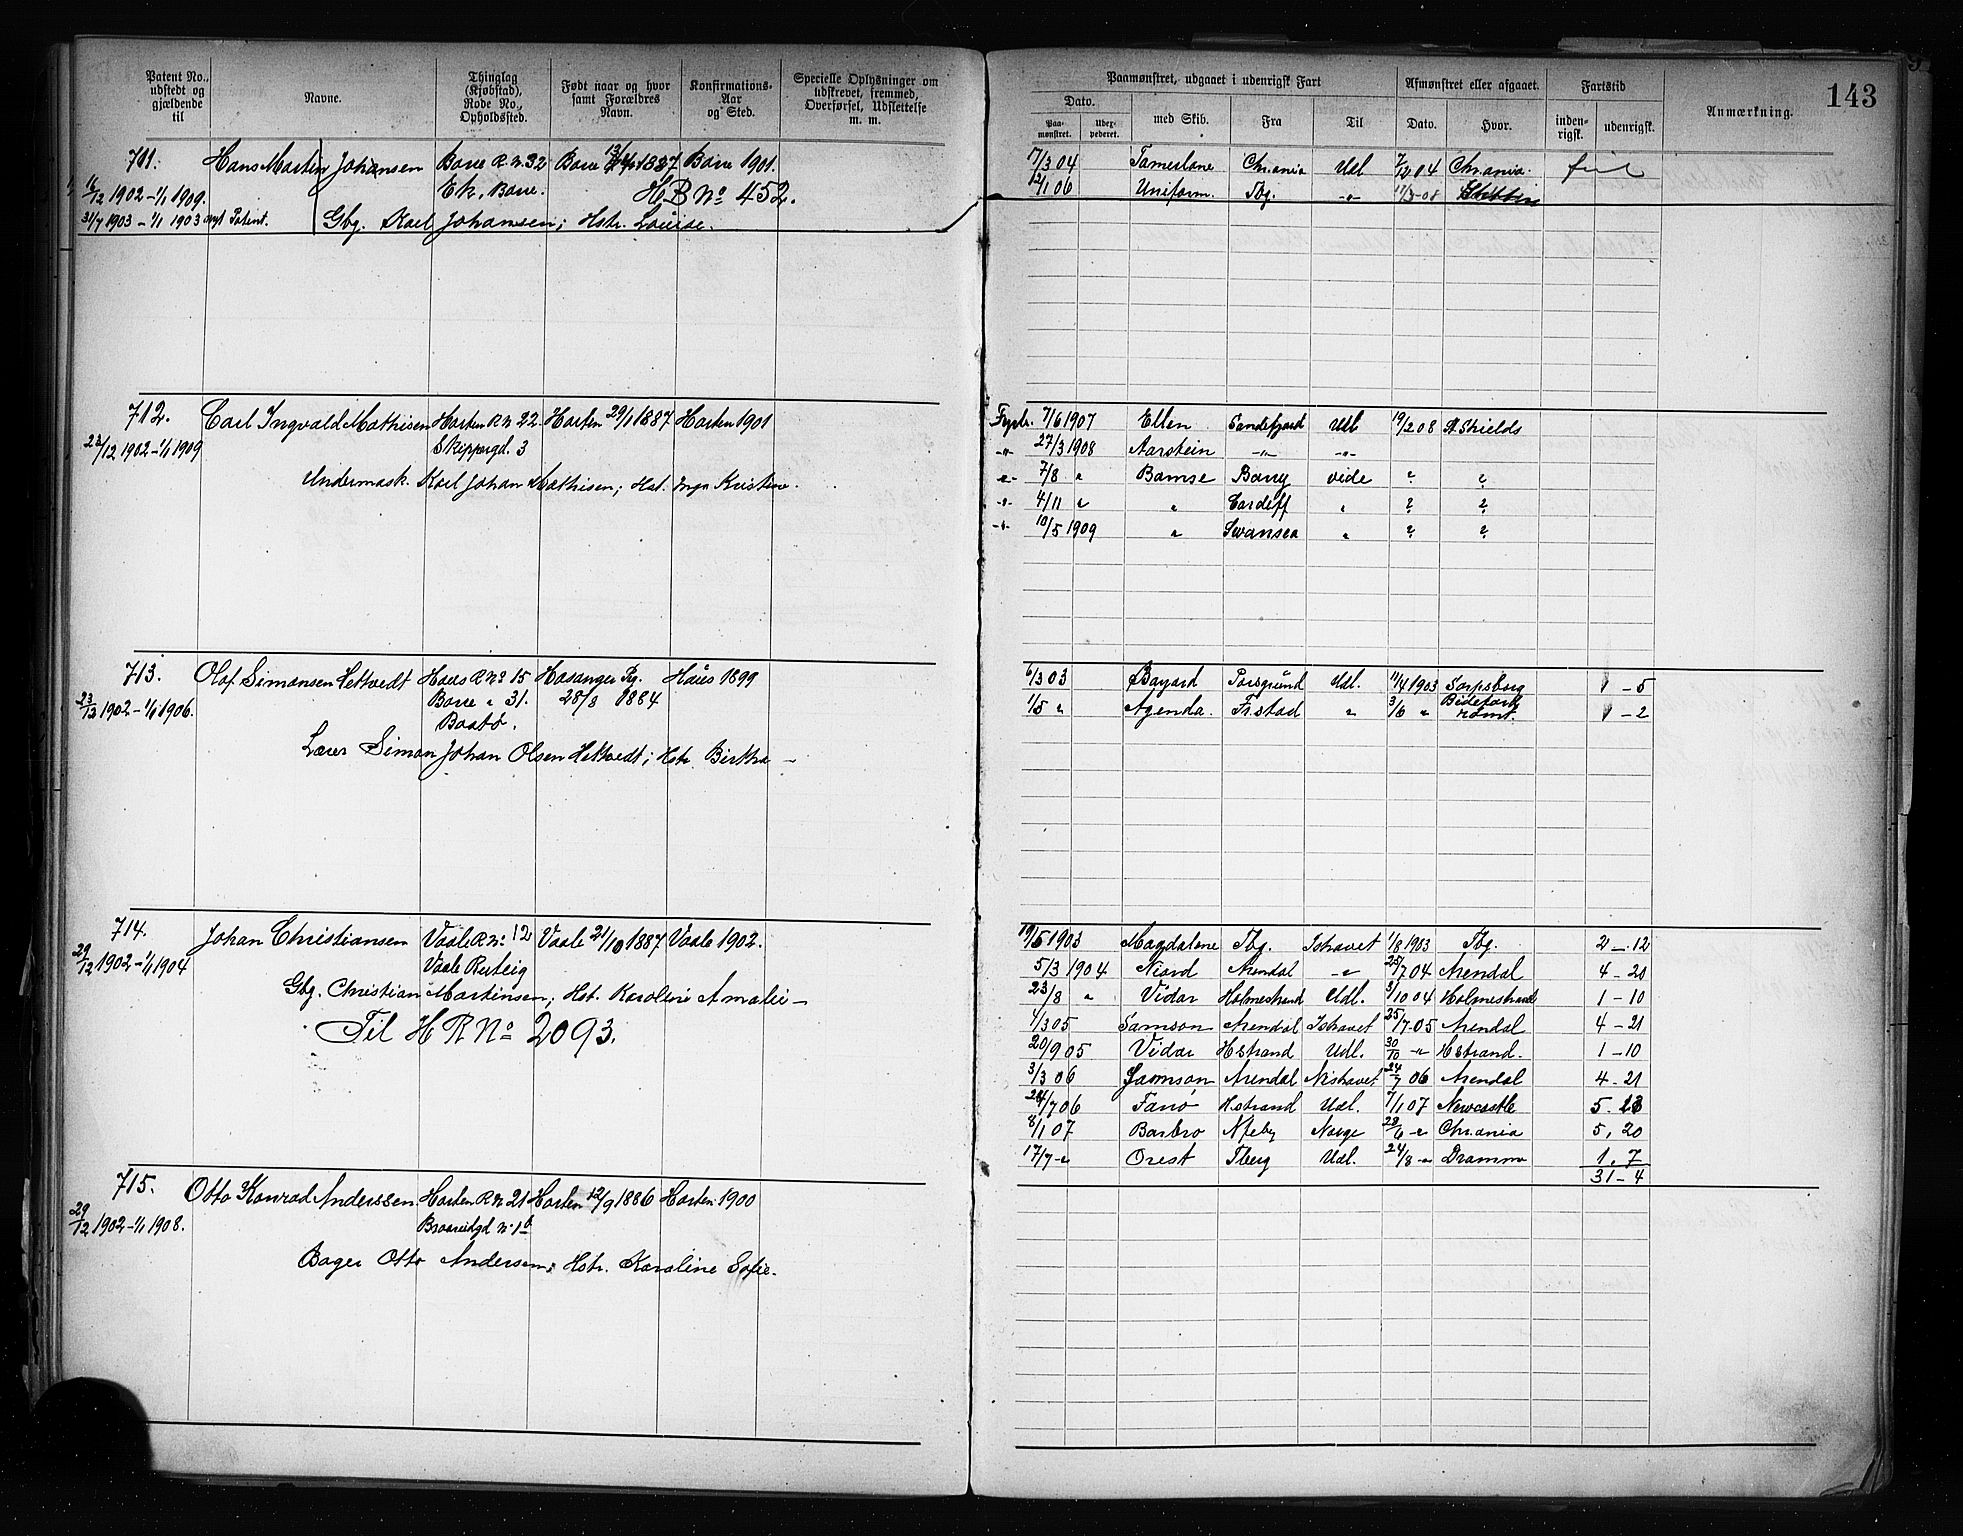 Patent No., udstedt og gjældende til
Navne.
Thinglag (Kjøbstad), Rode No., Opholdssted.
Født naar og hvor samt Forældres Navn.
Konfirmations-Aar og Sted.
Specielle Oplysninger om udskrevet, fremmed, Overførsel, Udslettelse m. m.
Paamønstret, udgaaet i udenrigsk Fart
Afmønstret eller afgaaet.
Fartstid
Anmærkning.
143
Dato.
Paa-mønstret.
Uder-pederet.
med Skib.
Fra
Til
Dato.
Hvor.
inden-rigsk.
udenrigsk.
711. Hans Martin Johansen Borre R. N. 32 Borre 1887 Borre 1901.
16/12 1902 - 1/1 1909. Ek, Borre. H.R No 452.
31/7 1903 - 1/1 1903 nyt Patent. Gbg. Karl Johansen; Hstr. Louise.
17/3 04 Tamerlane Chr.ania Udl 7/12 04 Chr.ania.
12/1 06 Uniform Tbg. -"- 17/3-08
712. Carl Ingvald Mathisen Horten R N 22 Horten 29/1 1887 Horten 1901
23/12 1902 - 1/1 1909 Skippergd. 3
Undermask. Karl Johan Mathisen; Hst. Inga Kristine.
Fyrb. 7/6 1907 Ellen Sandefjord Udl 19/2 08 N. Shields
-"- 27/3 1908 Aarstein -"- -"-
-"- 7/8 " Bamse Barry vide ? ?
-"- 4/11 " " Cardiff " ? ?
-"- 10/5 1909 " Swansea " ? ?
713. Olaf Simonsen Hettvedt Haus R No 15 Hosanger Pg. Haus 1899
23/12 1902 - 1/1 1906. Borre " 31. 28/8 1884
Bastø.
Lærer Simon Johan Olsen Hettvedt; Hstr. Birtha -
6/3 03 Bayard Porsgrund Udl. 11/4 1903 Sarpsborg 1 - 5
1/5 " Agenda. Fr.stad " 3/6 " Bideford rømt. 1 - 2
714. Johan Christiansen Vaale R No 12 Vaale 21/10 1887 Vaale 1902.
29/12 1902 - 1/1 1904 Vaale Rerteig
Gbg. Christian Martinsen; Hst. Karoline Amalie -
Til H R No 2093.
19/5 1903 Magdalene Tbg. Ishavet 1/8 1903 Tbg. 2 - 12
5/3 1904 Niord Arendal -"- 25/7 04 Arendal 4 - 20
23/8 " Vidar Holmestrand Udl. 3/10 04 Holmestrand 1 - 10
4/3 05 Samson Arendal Ishavet 25/7 05 Arendal 4 - 21
20/9 05 Vidar Hstrand Udl. 30/10 -"- Hstrand. 1 - 10
3/3 06 Samson Arendal Nishavet 24/7 06 Arendal 4 - 21
24/7 06 Fanø Hstrand Udl. 7/1 07 Newcastle 5. 13
8/1 07 Barbro Norge 28/6 -"- Chr.ania 5, 20
17/7 -"- Orest Tberg Udl. 24/8 -"- Drammen 1, 7
31 - 4
715. Otto Konrad Anderssen Horten R N 21 Horten 12/9 1886 Horten 1900
29/12 1902 - 1/1 1908.
Bager Otto Andersen; Hstr. Karoline Sofie.